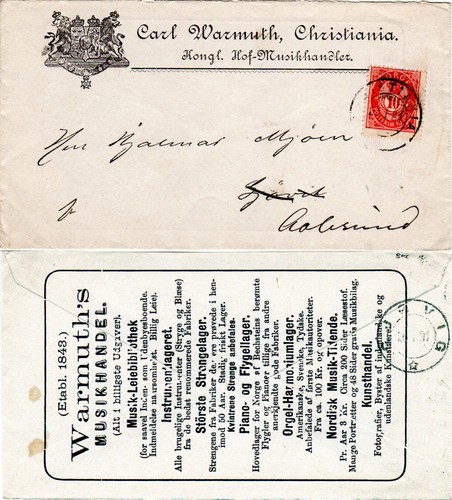 Carl Warmuth, Christiania.
Kongl. Hof-Musikhandler.
NORGE
10
Herr Hjalmar Mjöen
Gjøvik
Aalesund
(Etabl. 1843.)
Warmuth's
MUSIKHANDEL.
(Alt i billigste Udgaver).
Musik-Leiebibliothek
for saavel inden- som Udenbyesboende.
Indmeldelse naarsomhelst. Billig Leie).
Instrumentlageret.
Alle brugelige Instrumenter (Stryge og Blæse)
fra de bedst renommerede Fabriker.
Største Strængelager.
Strengene fra Fabriker ere prøvede i henimod
50 Aar. Stadig friskt Lager.
Kvintrene Strenge anbefales.
Piano- og Flygellager.
Hovedlager for Norge af Bechsteins berømte
Flygler og Pianoer tillige fra andre
anerkjendte gode Fabriker.
Orgel-Harmoniumlager.
Amerikanske, Svenske, Tydske.
Anbefalede af første Musikautoriteter.
Fra ca. 100 Kr. og opover.
Nordisk Musik-Tidende.
Pr. Aar 3 Kr. Circa 200 Sider Læsestof.
Mange Portrætter og 48 Sider gratis Musikbilag.
Kunsthandel.
Fotografier, Byster af indenlandske og
udenlandske Kunstnere.